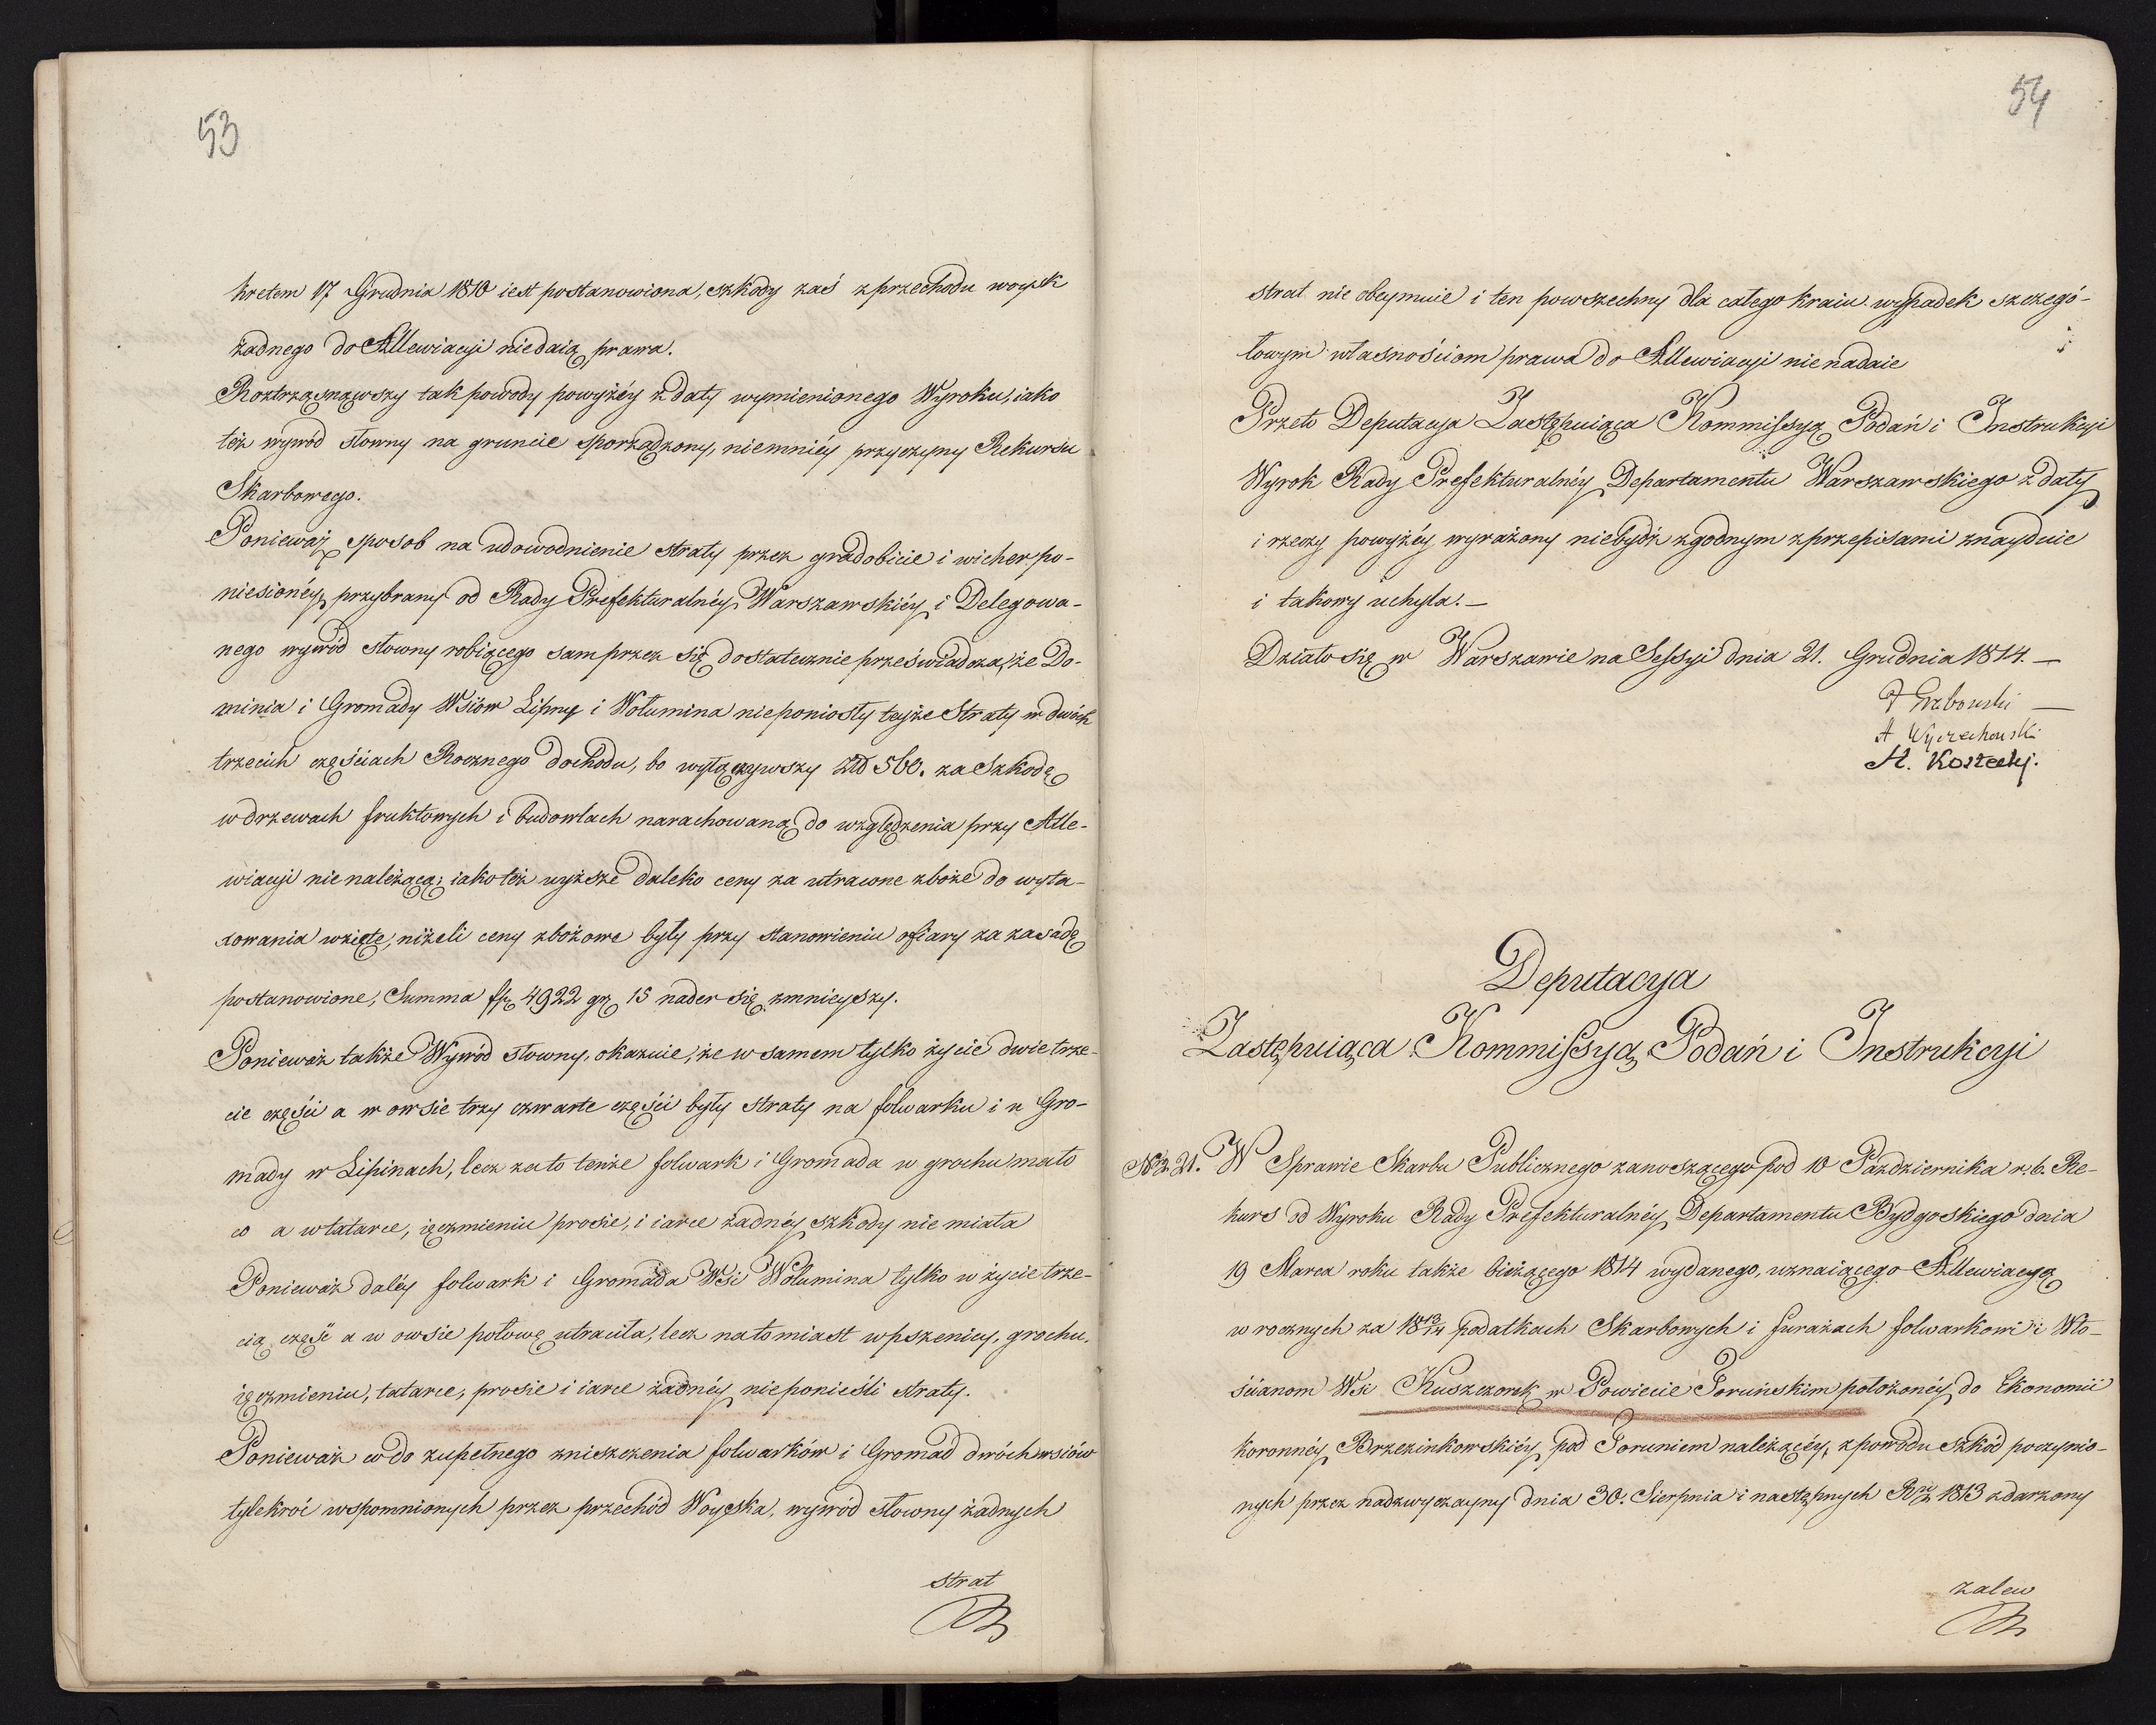 53
kretem 17 Grudnia 1810 iest postanowiona, szkody zaś z przechodu woysk
żadnego do Allewiacyi niedaią prawa.
Roztrząsnąwszy tak powody powyżéy z daty wymienionego Wyroku, iako
też wywód słowny na gruncie sporządzony, niemniéy przyczyny Rekursu
Skarbowego.
Ponieważ sposob na udowodnienie straty przez gradobicie i wicher po-
niesionéy, przybrany od Rady Prefekturalnéy Warszawskiéy i Delegowa-
nego wywód słowny robiącego sam przez się dostatecznie przeświadcza, że Do-
minia i Gromady Wsiow Lipiny i Wołumina nieponiosły teyże Straty w dwóch
trzecich częściach Rocznego dochodu, bo wyłączywszy Złł 560. za Szkodę
w drzewach fruktowych i budowlach narachowaną do względzenia przy Alle-
wiacyi nie należącą; iako też wyższe daleko ceny za utracone zboże do wyta-
xowania wzięte, niżeli ceny zbożowe były przy stanowieniu ofiary za zasadę
postanowione, Summa fp 4922 gr 15 nader się zmnieyszy.
Ponieważ także Wywód słowny, okazuie, że w samem tylko życie dwie trze-
cie części a w owsie trzy czwarte części były straty na folwarku i u Gro-
mady w Lipinach, lecz za to tenże folwark i Gromada w grochu mało
co a w tatarce, ięczmieniu prosie, i iarce żadnéy szkody nie miała
Ponieważ daléy folwark i Gromada Wsi Wołumina tylko w życie trze-
cią część a w owsie połowę utraciła, lecz natomiast w pszenicy, grochu,
ięczmieniu, tatarce, prosie i iarce żadnéy nieponieśli straty.
Ponieważ co do zupełnego zniszczenia folwarków i Gromad dwóch wsiów
tylekroć wspomnionych przez przechód Woyska, wywód słowny żadnych
strat
54
strat nie obeymuie i ten powszechny dla całego kraiu wypadek szczegó-
łowym własnościom prawa do Allewiacyi nie nadaie
Przeto Deputacya Zastępuiąca Kommissyą Podań i Instrukcyi
Wyrok Rady Prefekturalnéy Departamentu Warszawskiego z daty
i rzeczy powyżéy wyrażony niebydź zgodnym z przepisami znayduie
i takowy uchyla. —
Działo się w Warszawie na Sessyi dnia 21. Grudnia 1814. —
Grabowski —
A Wyczechowski
A. Kożecky.
Deputacya
Zastępuiąca Kommissyą Podań i Instrukcyi
Nro. 21. W Sprawie Skarbu Publicznego zanoszącego pod 10 Października r. b. Re-
kurs od Wyroku Rady Prefekturalnéy Departamentu Bydgoskiego dnia
19 Marca roku także bieżącego 1814 wydanego, uznaiącego Allewiacyą
w rocznych za 1813/14 podatkach Skarbowych i furażach folwarkowi i Wło-
ścianom Wsi Kuszczorek w Powiecie Toruńskim położonéy do Ekonomii
koronnéy Brzezinkowskiéy pod Toruniem należącéy, z powodu szkód poczynio-
nych przez nadzwyczayny dnia 30. Sierpnia i następnych Rku 1813 zdarzony
zalew